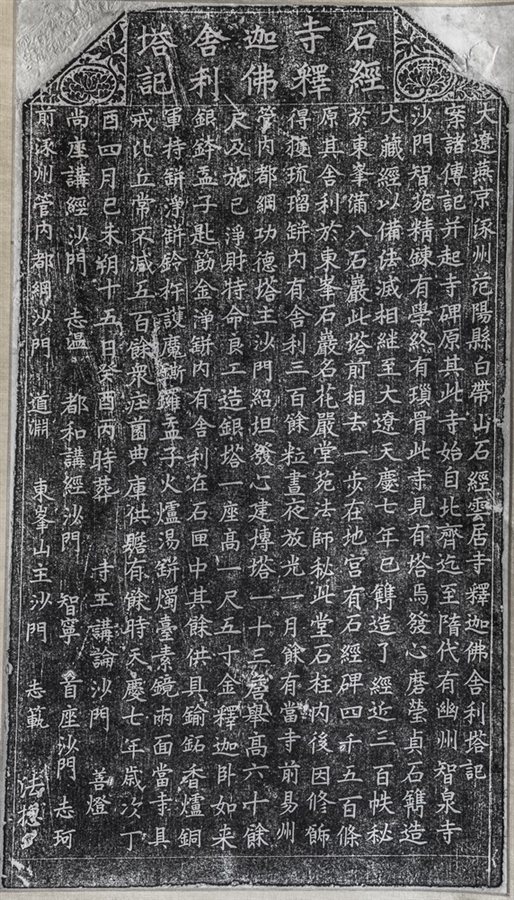 石經寺釋迦佛舍利塔記
大遼燕京涿州范陽縣白帶山石經雲居寺釋迦佛舍利塔記
案諸傳記并起寺碑原其此寺始自北齊迄至隋代有幽州智泉寺
沙門智苑精鍊有學終有瑣骨此寺見有塔焉發心磨瑩貞石鐫造
大藏經以備法滅相継至大遼天慶七年已鐫造了經近三百帙秘
於東峯滿八石巖此塔前相去一步在地宮有石經碑四千五百條
原其舍利於東峯石巖名花嚴堂苑法師秘此堂石柱内後因修飾
得獲琉璃缾内有舍利三百餘粒晝夜放光一月餘有當寺前易州
管内都綱功德塔主沙門紹坦發心建塼塔一十三層舉高六十餘
尺及施己淨財特命良工造銀塔一座高一尺五寸金釋迦卧如来
銀鉢盂子匙筯金淨缾内有舍利在石匣中其餘供具鍮鉐香爐銅
軍持缾淨缾鈴杵護魔鏾鑼盂子火爐湯缾燭臺素鏡兩面當寺具
戒比丘常不減五百餘衆庄菌典庫供贍有餘時天慶七年歲次丁
酉四月己未朔十五日癸酉丙時葬 寺主講論沙門 善燈
尚座講經沙門 志温 都和講經沙門 智寧 首座沙門 志珂
前涿州管内都綱沙門 道淵 東峯山主沙門 志範